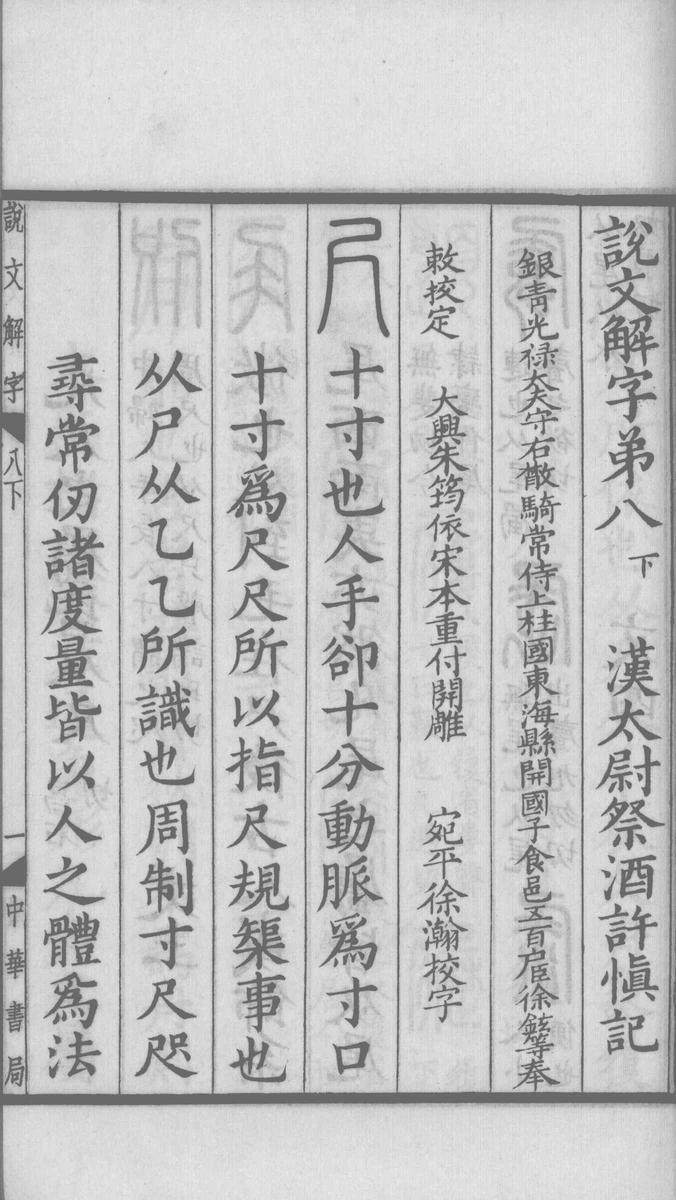 說文解字弟八下 漢太尉祭酒許愼記
銀靑光祿大夫守右散騎常侍上柱國東海縣開國子食邑五百戶臣徐鉉等奉
敕挍定 大興朱筠依宋本重付開雕 宛平徐瀚挍字
尺 十寸也人手卻十分動脈爲寸口
十寸爲尺尺所以指尺規榘事也
从尸从乙乙所識也周制寸尺咫
尋常仞諸度量皆以人之體爲法
說文解字 八下 一 中華書局